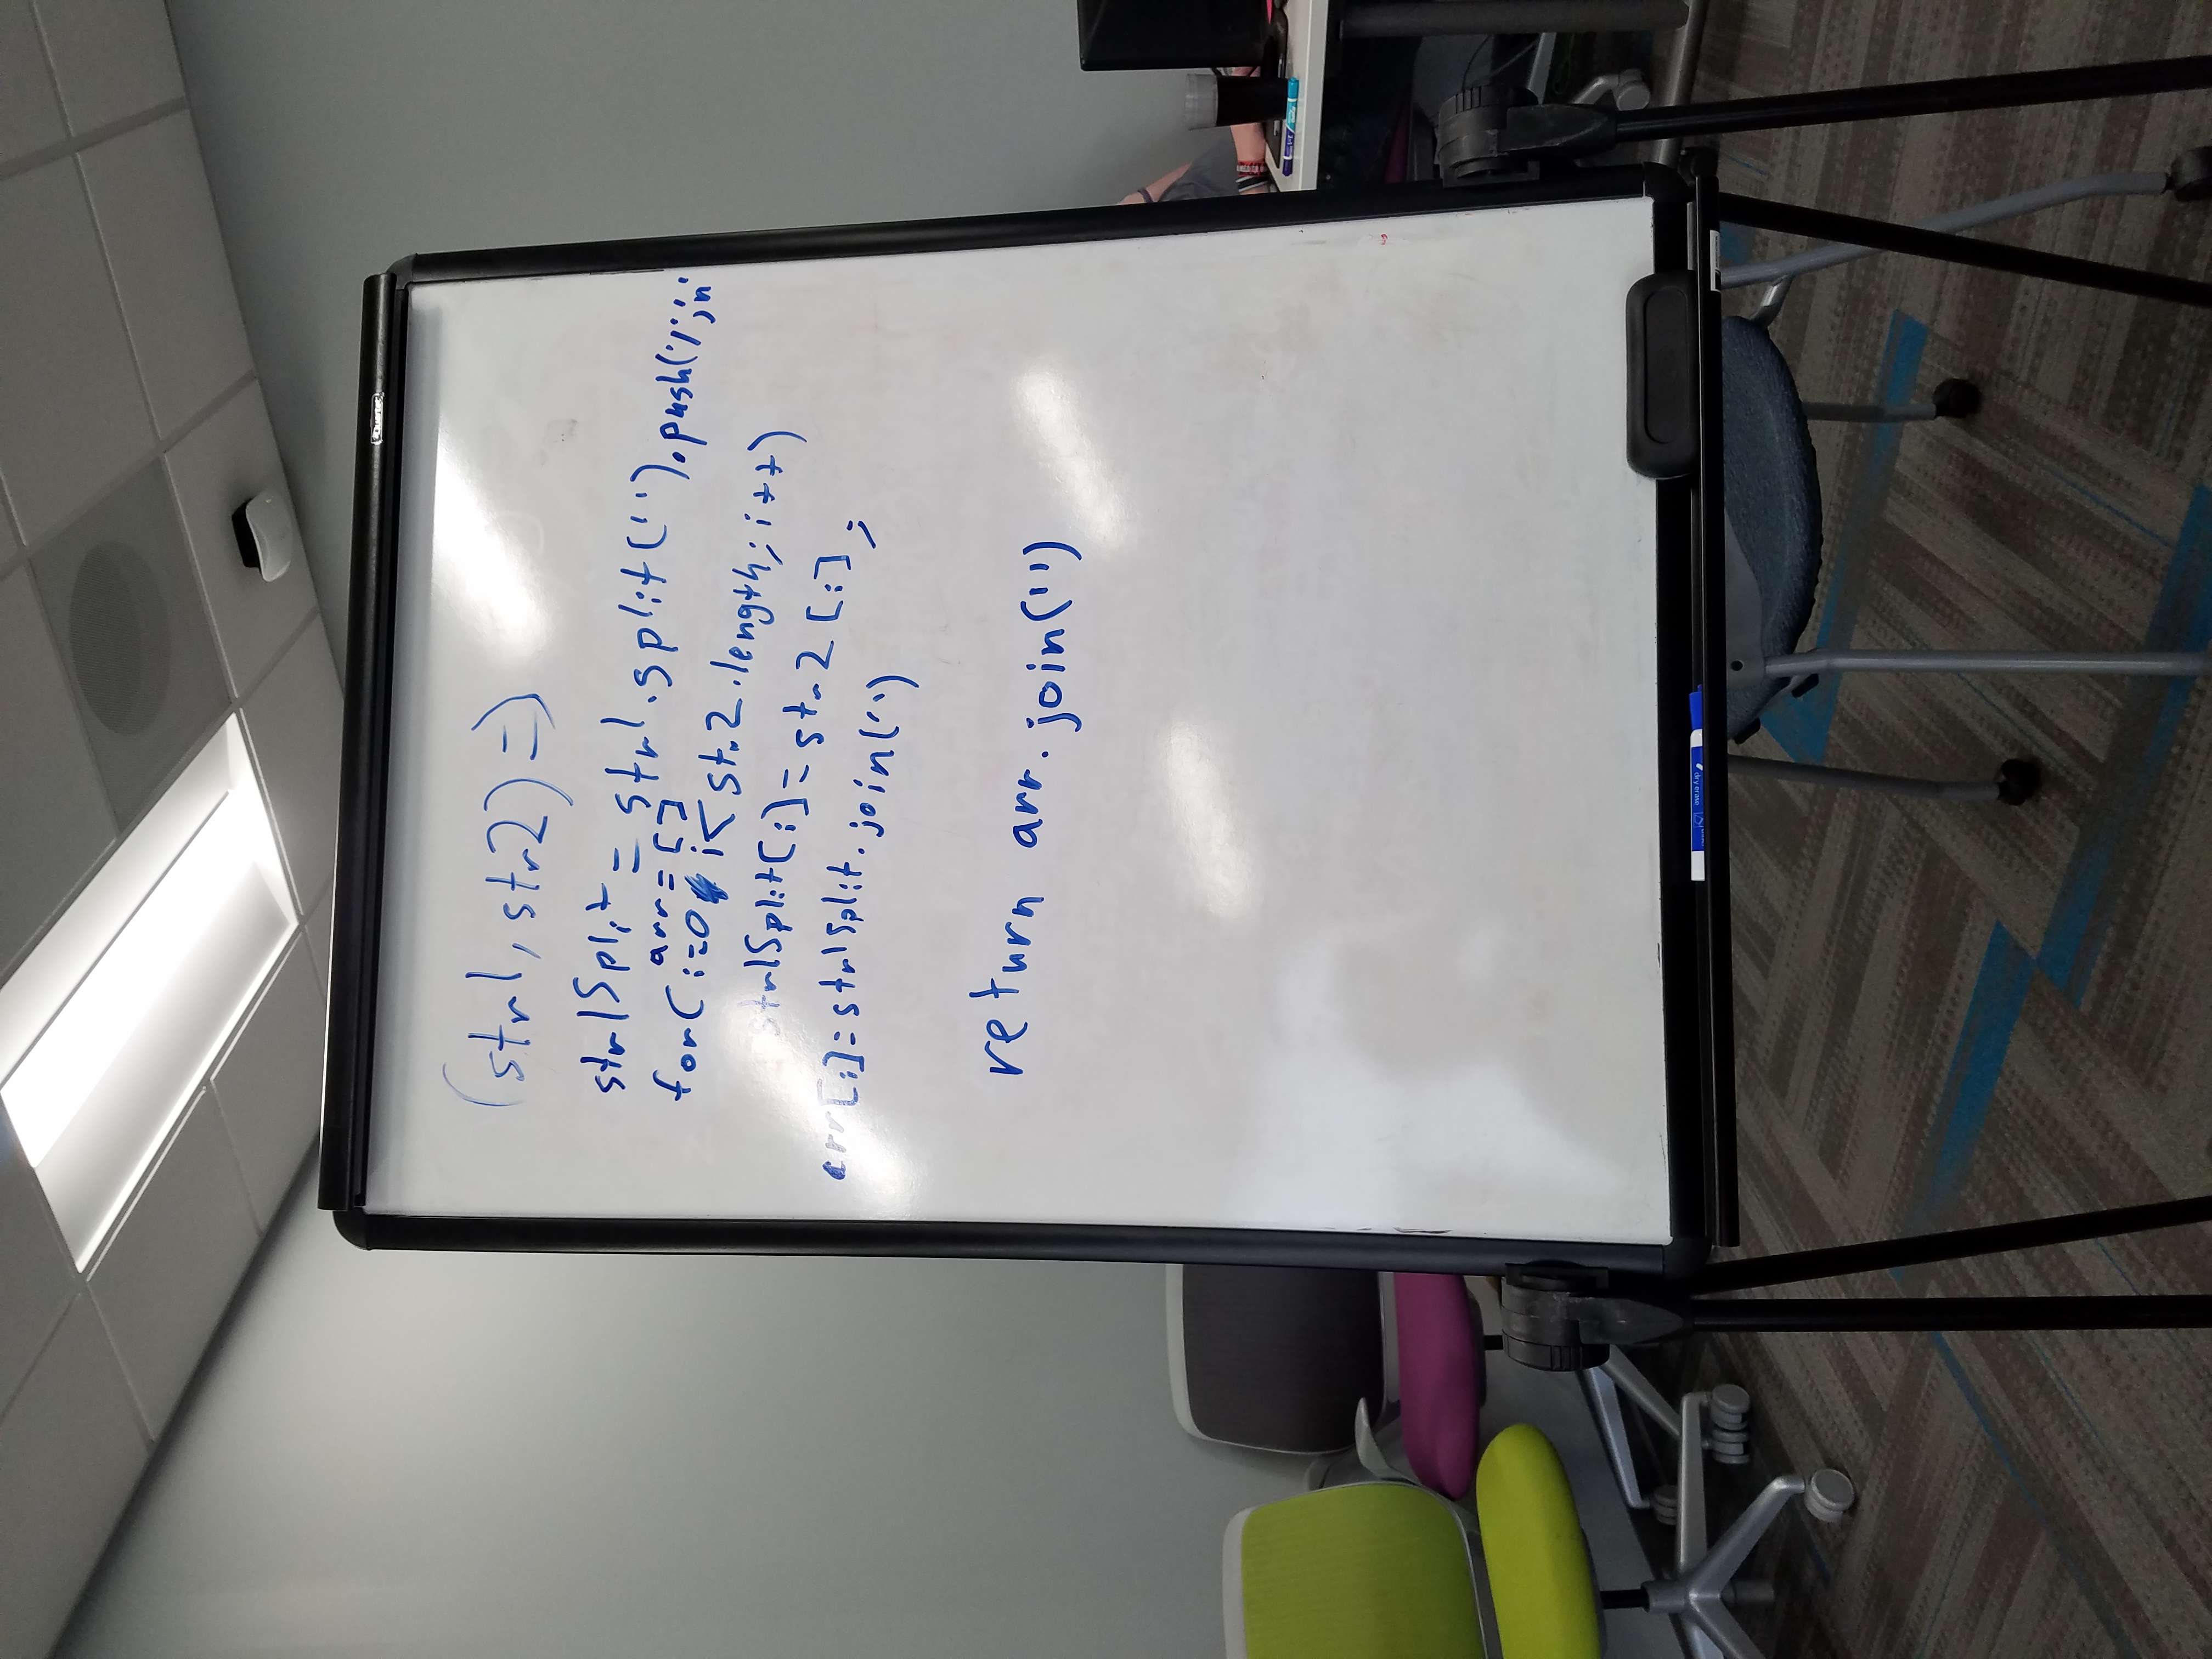 Quartet
(str1, str2) =>
str1Split = str1.split('').push('/','n'
arr = []
for( i=0 i< str2.length; i++)
str1Split[i] = str2[i];
arr[i] = str1Split.join('')
return arr.join('')
dry erase